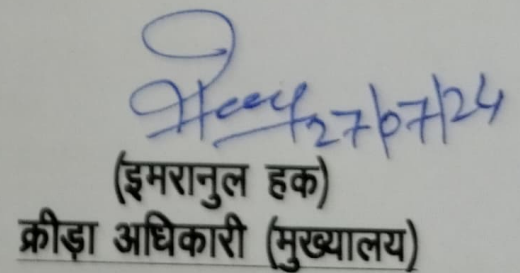 27/07/24
(इमरानुल हक)
क्रीड़ा अधिकारी (मुख्यालय)